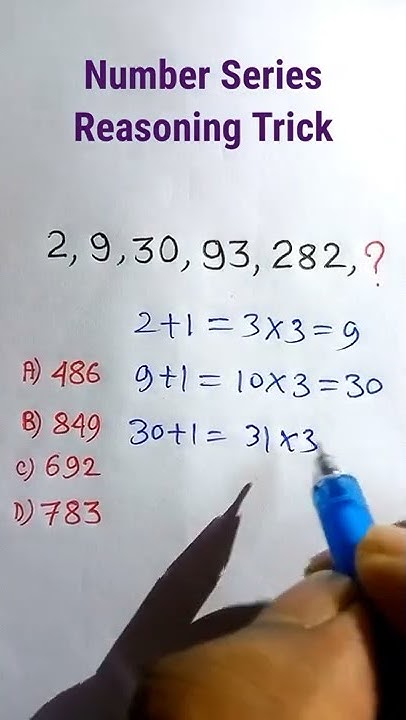 Number Series
Reasoning Trick
2, 9, 30, 93, 282, ?
2+1 = 3×3 = 9
A) 486
9+1 = 10×3 = 30
B) 849
30+1 = 31×3
C) 692
D) 783